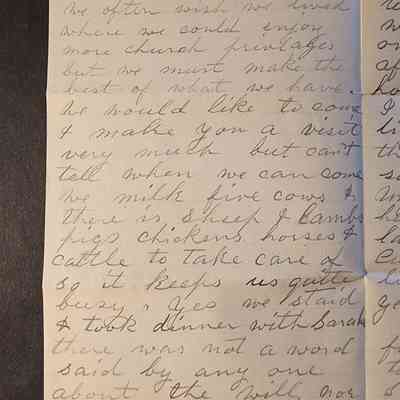 we often wish we lived
where we could enjoy
more church privlages
but we must make the
best of what we have.
we would like to come
& make you a visit
very much but can't
tell when we can come
we milk five cows &
there is sheep & lambs
pigs chickens horses &
cattle to take care of
so it keeps us quite
busy, Yes we staid
& took dinner with Sarah
there was not a word
said by any one
about the will, nor